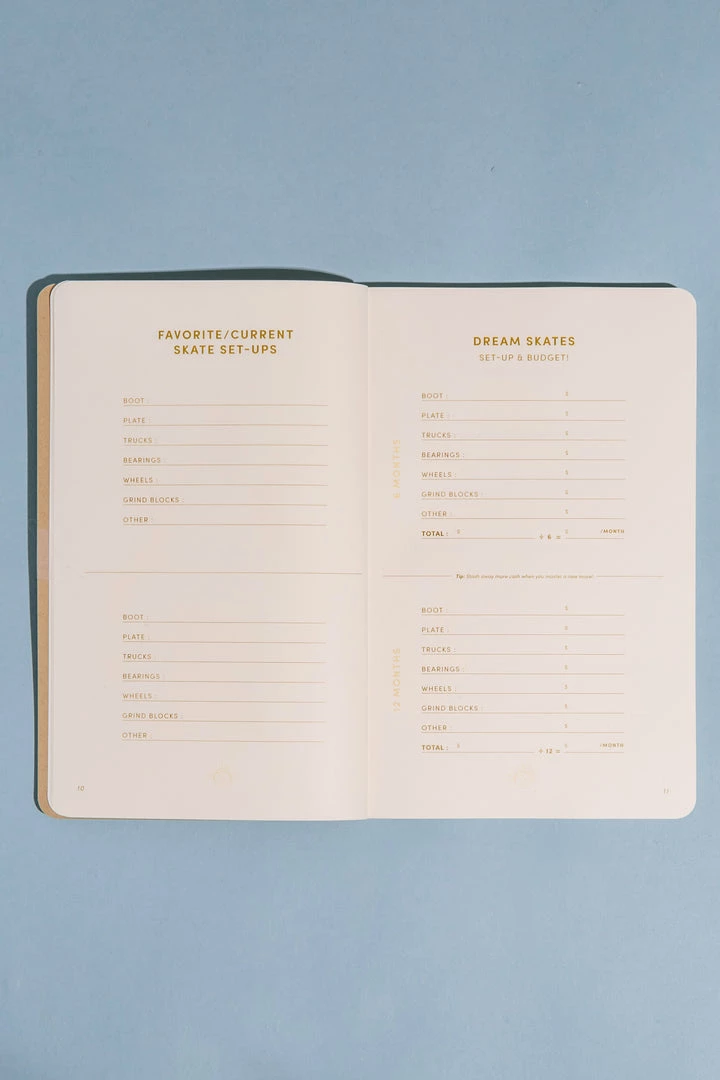 FAVORITE/CURRENT
SKATE SET-UPS
BOOT :
PLATE :
TRUCKS :
BEARINGS :
WHEELS :
GRIND BLOCKS :
OTHER :
BOOT :
PLATE :
TRUCKS :
BEARINGS :
WHEELS :
GRIND BLOCKS :
OTHER :
10
DREAM SKATES
SET-UP & BUDGET!
6 MONTHS
BOOT : $
PLATE : $
TRUCKS : $
BEARINGS : $
WHEELS : $
GRIND BLOCKS : $
OTHER : $
TOTAL : $ ÷ 6 = $ /MONTH
Tip: Stash away more cash when you master a new move!
12 MONTHS
BOOT : $
PLATE : $
TRUCKS : $
BEARINGS : $
WHEELS : $
GRIND BLOCKS : $
OTHER : $
TOTAL : $ ÷ 12 = $ /MONTH
11